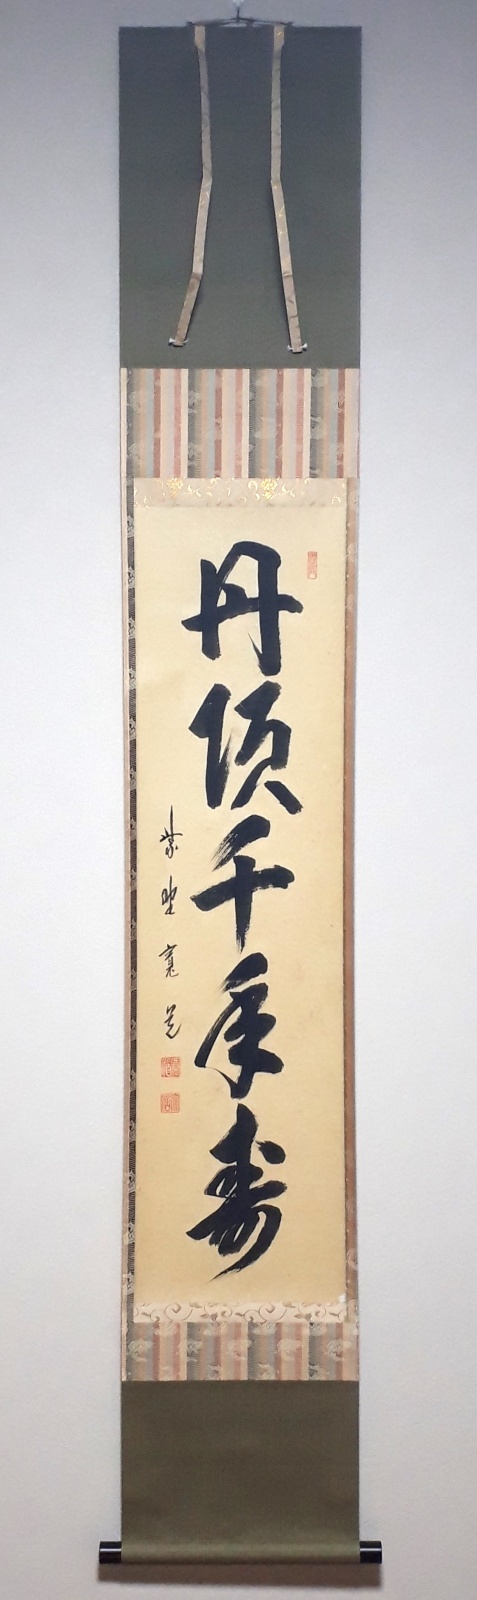 丹頂千年寿
紫野寛道